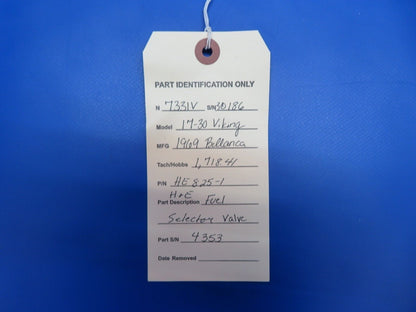 PART IDENTIFICATION ONLY
N 7331V S/N 30186
Model 17-30 Viking
MFG 1969 Bellanca
Tach/Hobbs 1,718.41
P/N HE 825-1
H+E
Part Description Fuel
Selector Valve
Part S/N 4353
Date Removed